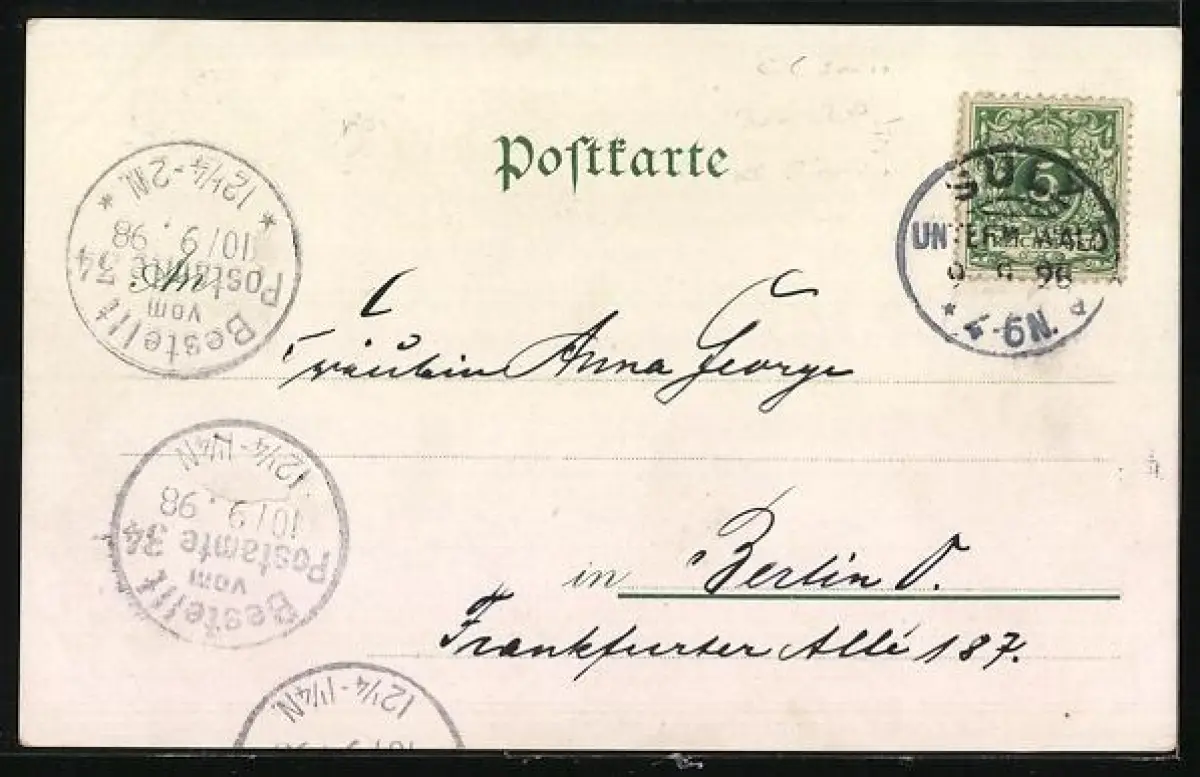 Postkarte
5
SULZ
UNTERM WALD
9 9 98
* 4-6N.
* 12¼-2N. *
10/9.98
Bestellt
vom
Postamte 34
Fräulein Anna George
12¼-1¼N
10/9.98
Bestellt
vom
Postamte 34
in Berlin O.
Frankfurter Allé 187.
12¼-1¼N.
10/9.98